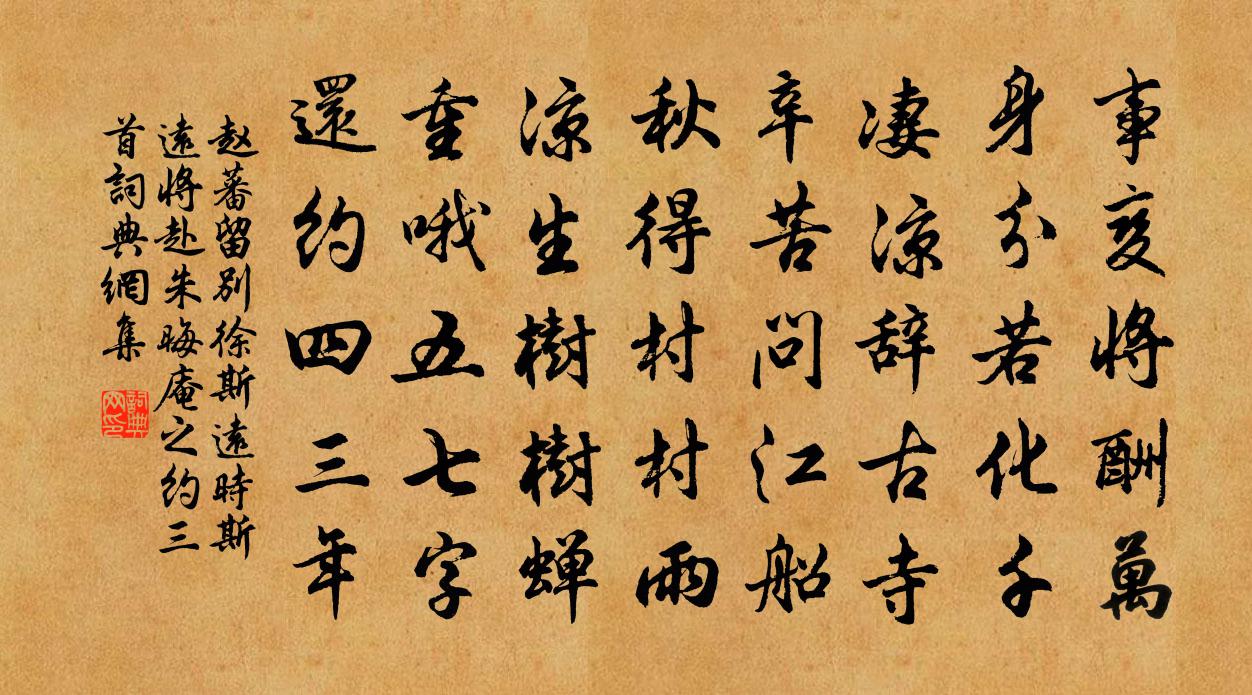 事变将酬萬
身分若化千
凄凉辞古寺
辛苦问江船
秋得村村雨
凉生樹樹蝉
重哦五七字
還约四三年
赵蕃留别徐斯遠時斯
遠将赴朱晦庵之约三
首詞典網集
詞典
网印